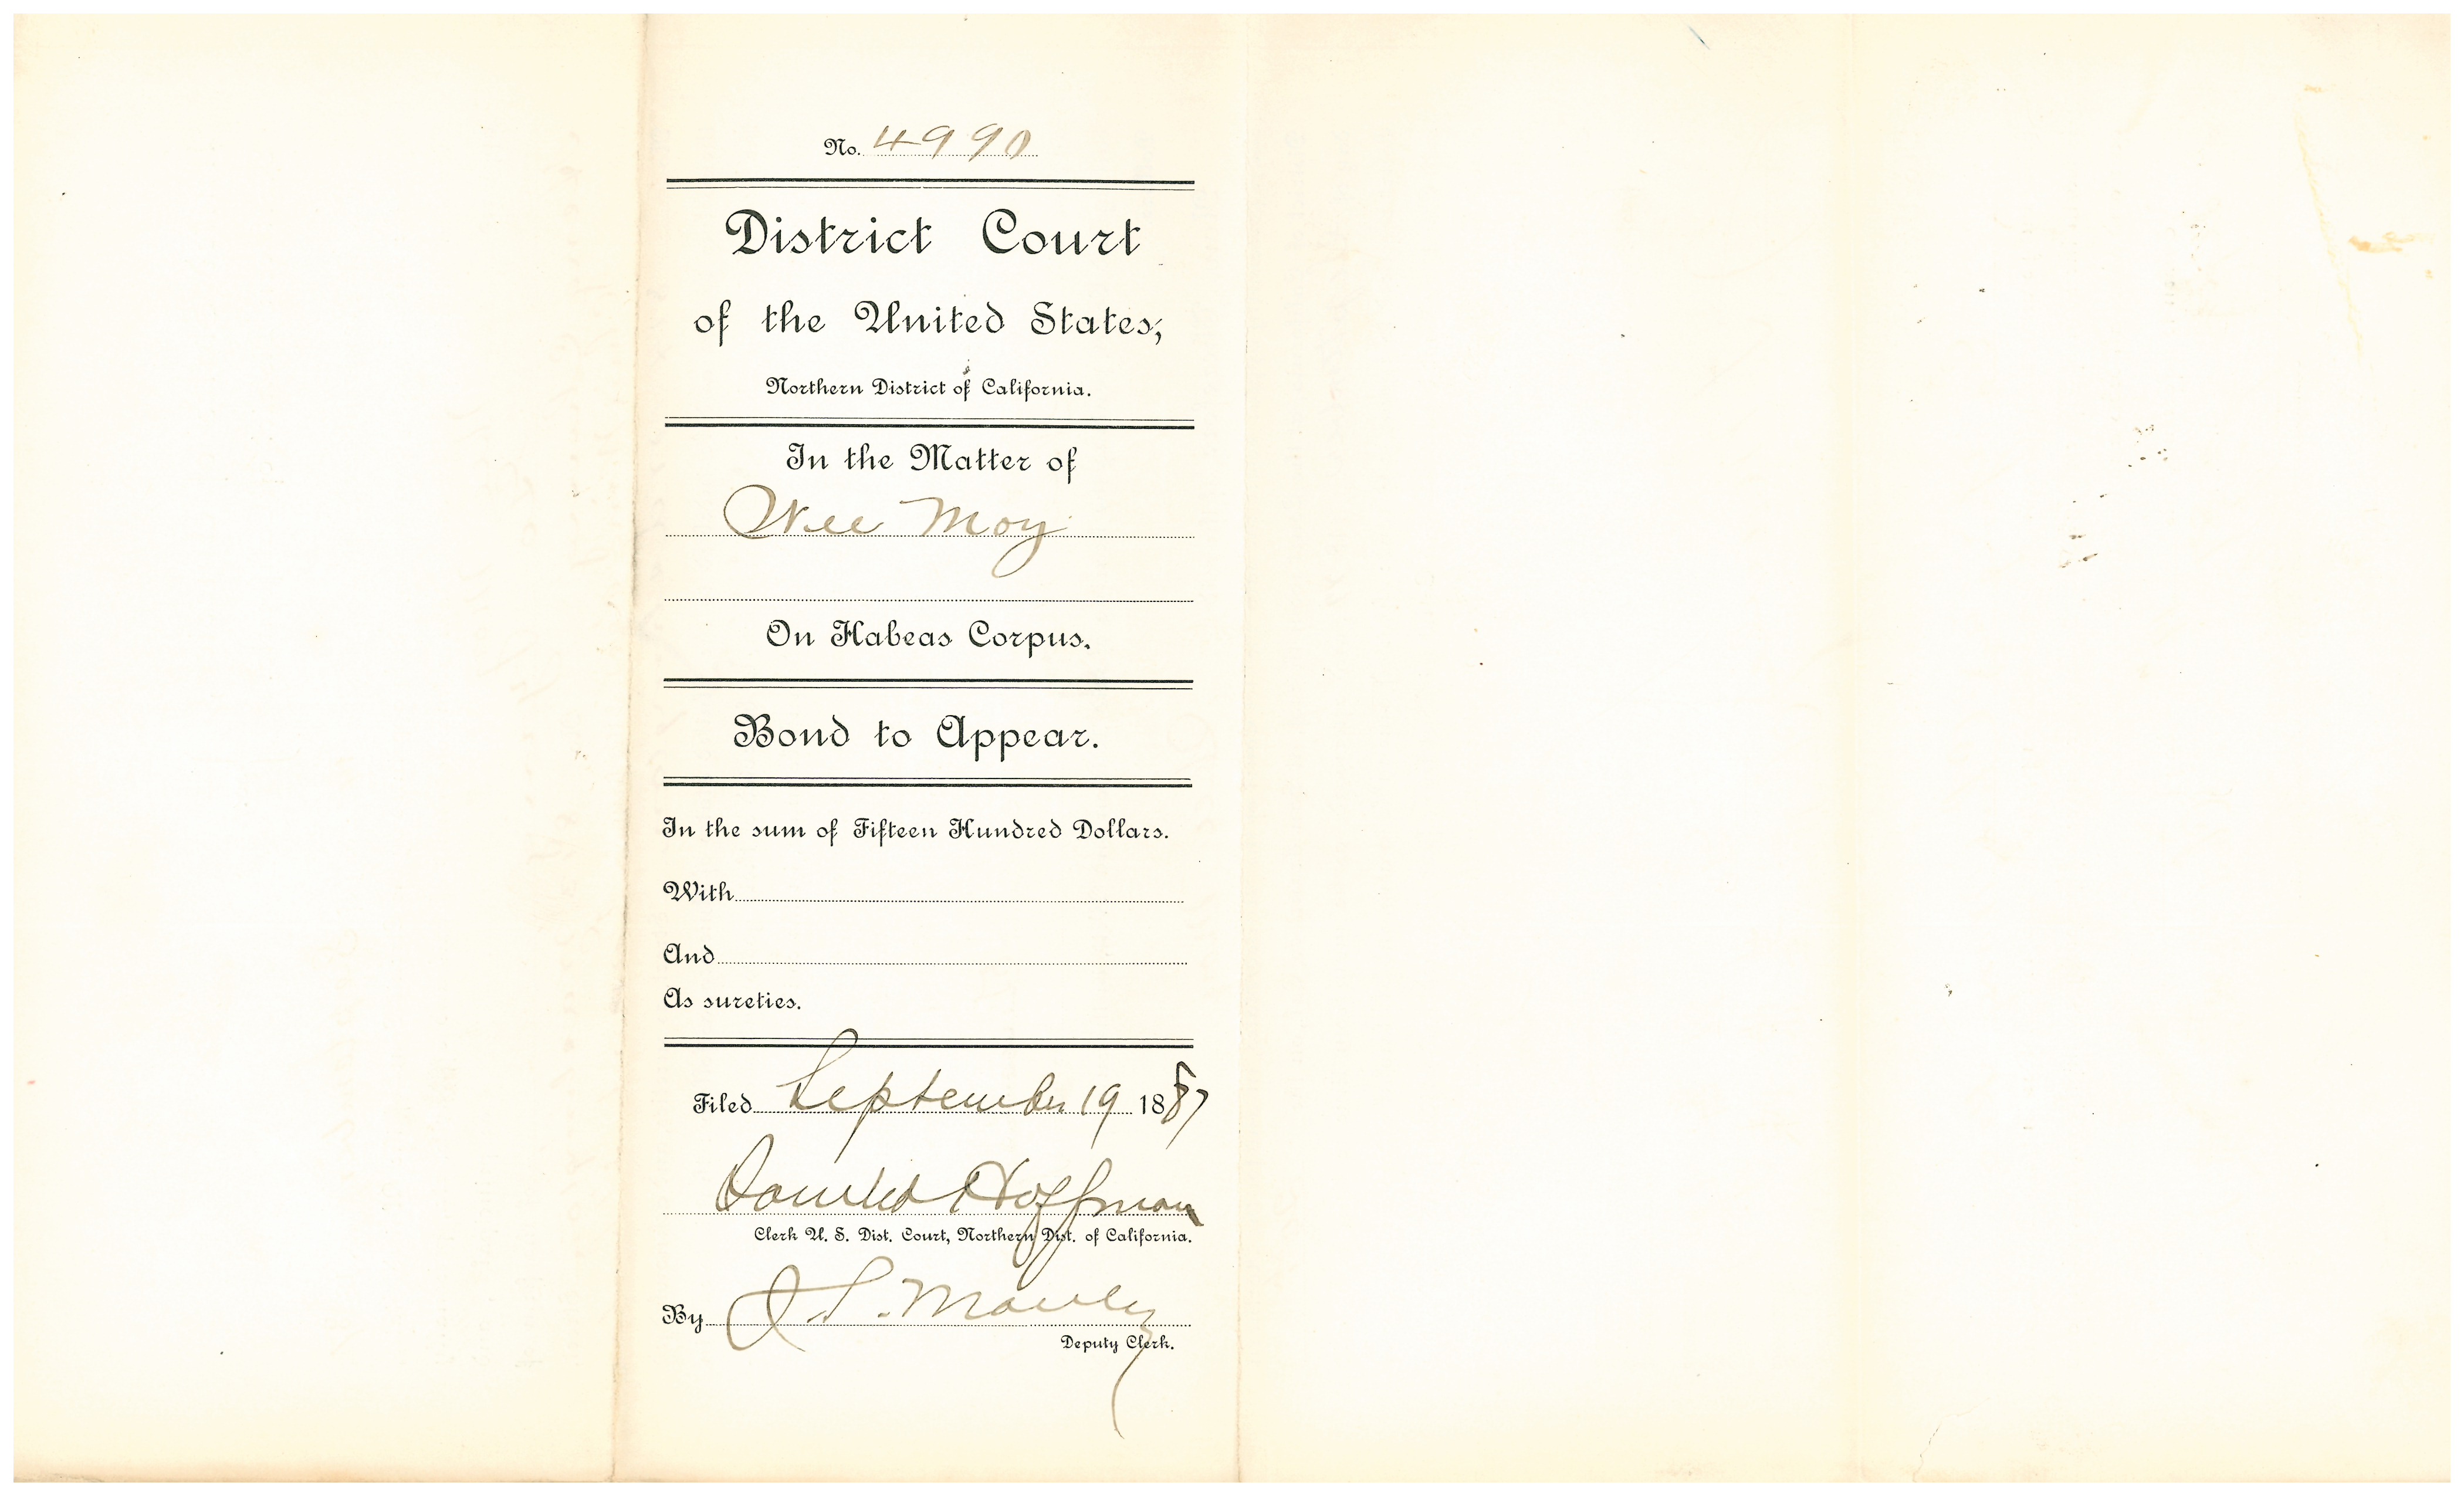 No. 4990
District Court
of the United States,
Northern District of California.
In the Matter of
Wee Moy
On Habeas Corpus.
Bond to Appear.
In the sum of Fifteen Hundred Dollars.
With
And
As sureties.
Filed September 19 1887
Hoffman
Clerk U. S. Dist. Court, Northern Dist. of California.
By Manley
Deputy Clerk.